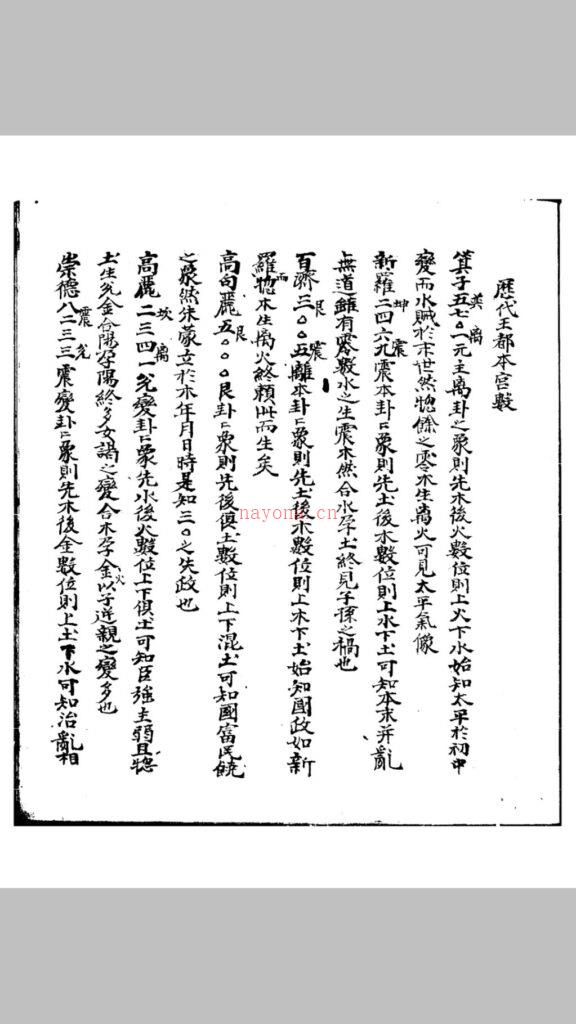 歷代王都本宮數
箕子五七〇一元主离卦之象則先木後火數位則上火下水始知太平於初中
巽 离
變而水賊於末世然惚餘之零木生离火可見太平氣像
新羅二四六九震本卦亡象則先土後木數位則上水下土可知本末并亂
坤 震
無道雖有零數水之生震木然合水孕土終見子孫之禍也
百濟三〇〇五離本卦亡象則先土後木數位則上木下土始知國政如新
艮 震
羅惚木生离火終賴此而生矣
而
高句麗五〇〇〇艮卦亡象則先後俱土數位則上下混土可知國富民饒
艮
之象然朱蒙立於木年月日時是知三〇之失政也
高麗二三四一兌變卦亡象先水後火數位上下俱土可知臣強主弱且惚
坎 离
土生兌金合陽孕陽終多女謁之變合木孕金以子逆親之變多也
火
崇德八二三三震變卦亡象則先木後金數位則上土下水可知治亂相
震 兌
nayona.cn